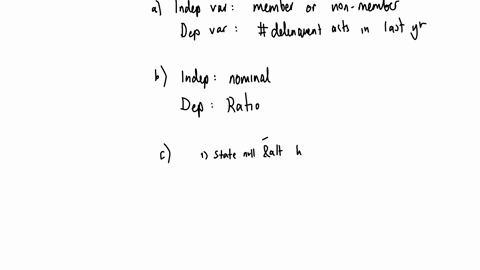 a) Indep var: member or non-member
Dep var: # delinquent acts in last yr
b) Indep: nominal
Dep: Ratio
c) 1) State null & alt h